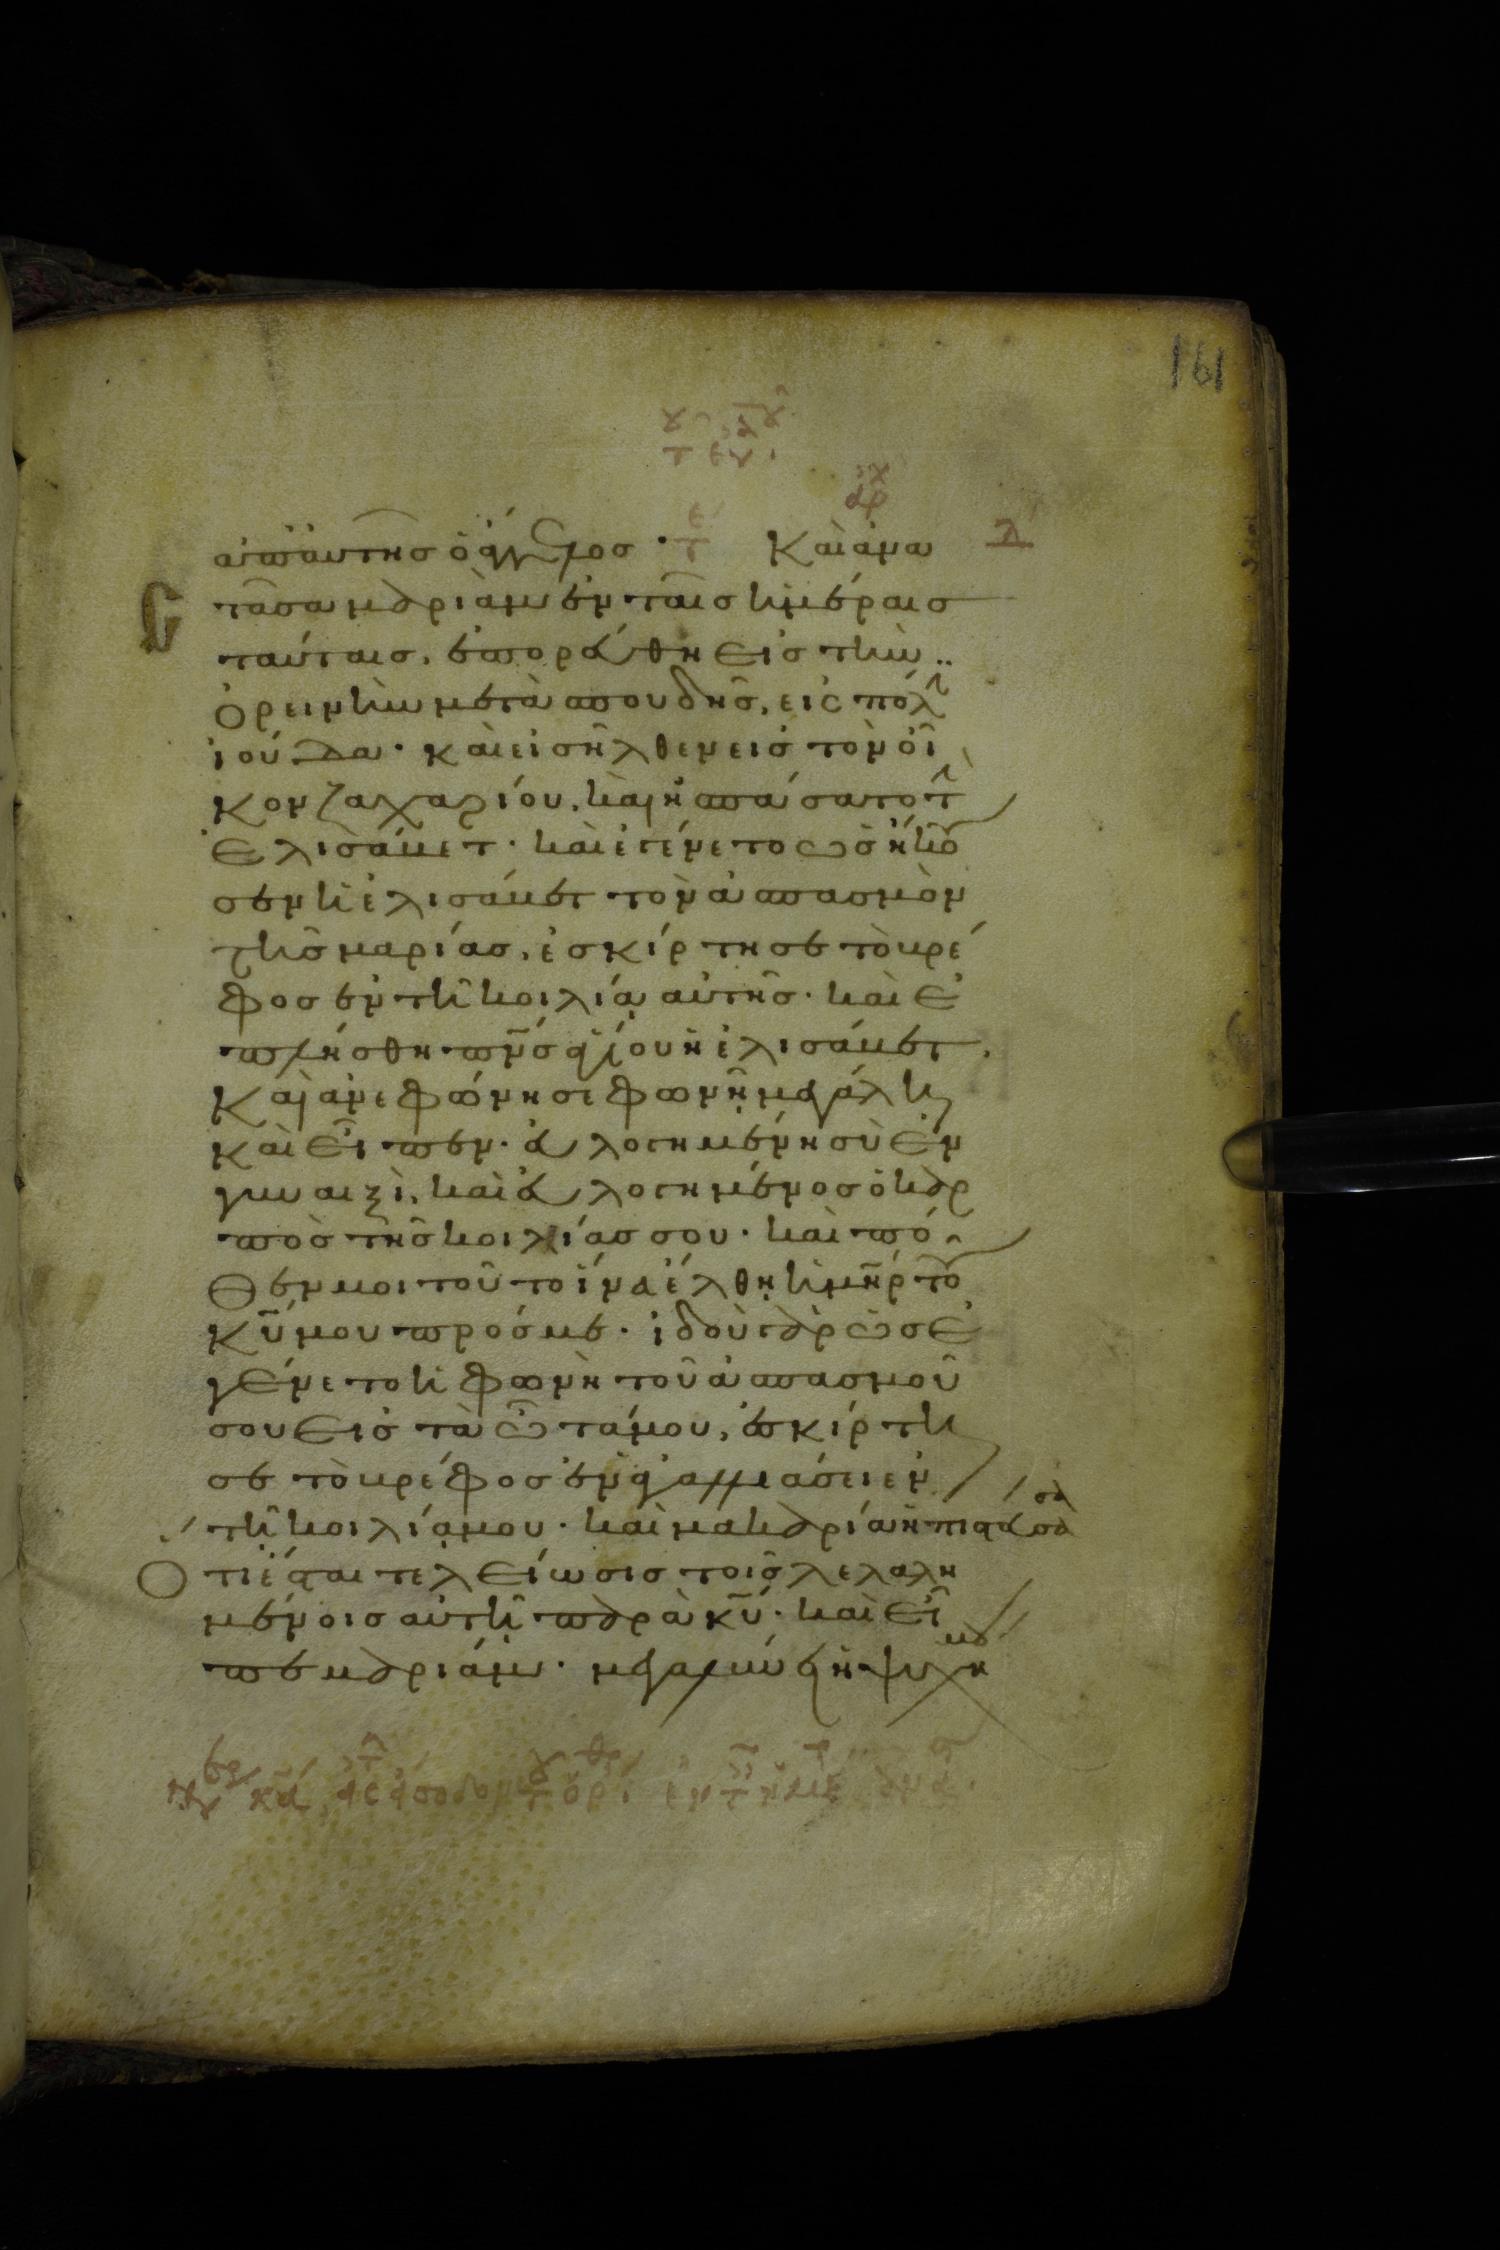 161
ἀπ' αὐτῆς ὁ ἄγγελος · Καὶ ἀνα
στᾶσα μαριὰμ ἐν ταῖς ἡμέραις
ταύταις, ἐπορεύθη εἰς τὴν
ὀρεινὴν μετὰ σπουδῆς, εἰς πόλιν
ἰούδα · καὶ εἰσῆλθεν εἰς τὸν οἶ
κον ζαχαρίου, καὶ ἠσπάσατο τὴν
ἐλισάβετ · καὶ ἐγένετο ὡς ἤκου
σεν ἡ ἐλισάβετ τὸν ἀσπασμὸν
τῆς μαρίας, ἐσκίρτησε τὸ βρέ
φος ἐν τῇ κοιλίᾳ αὐτῆς · καὶ ἐ
πλήσθη πν̅ς ἁγίου ἡ ἐλισάβετ,
καὶ ἀνεφώνησε φωνῇ μεγάλῃ
καὶ εἶπεν · εὐλογημένη σὺ ἐν
γυναιξὶ, καὶ εὐλογημένος ὁ καρ
πὸς τῆς κοιλίας σου · καὶ πό
θεν μοι τοῦτο ἵνα ἔλθῃ ἡ μη̅ρ τοῦ
κ̅υ μου πρός με · ἰδοὺ γὰρ ὡς ἐ
γένετο ἡ φωνὴ τοῦ ἀσπασμοῦ
σου εἰς τὰ ὦτά μου, ἐσκίρτη
σε τὸ βρέφος ἐν ἀγαλλιάσει ἐν
τῇ κοιλίᾳ μου · καὶ μακαρία ἡ πιστεύσασα
ὅτι ἔσται τελείωσις τοῖς λελαλη
μένοις αὐτῇ παρὰ κ̅υ · καὶ εἶ
πε μαριάμ · μεγαλύνει ἡ ψυχή μου